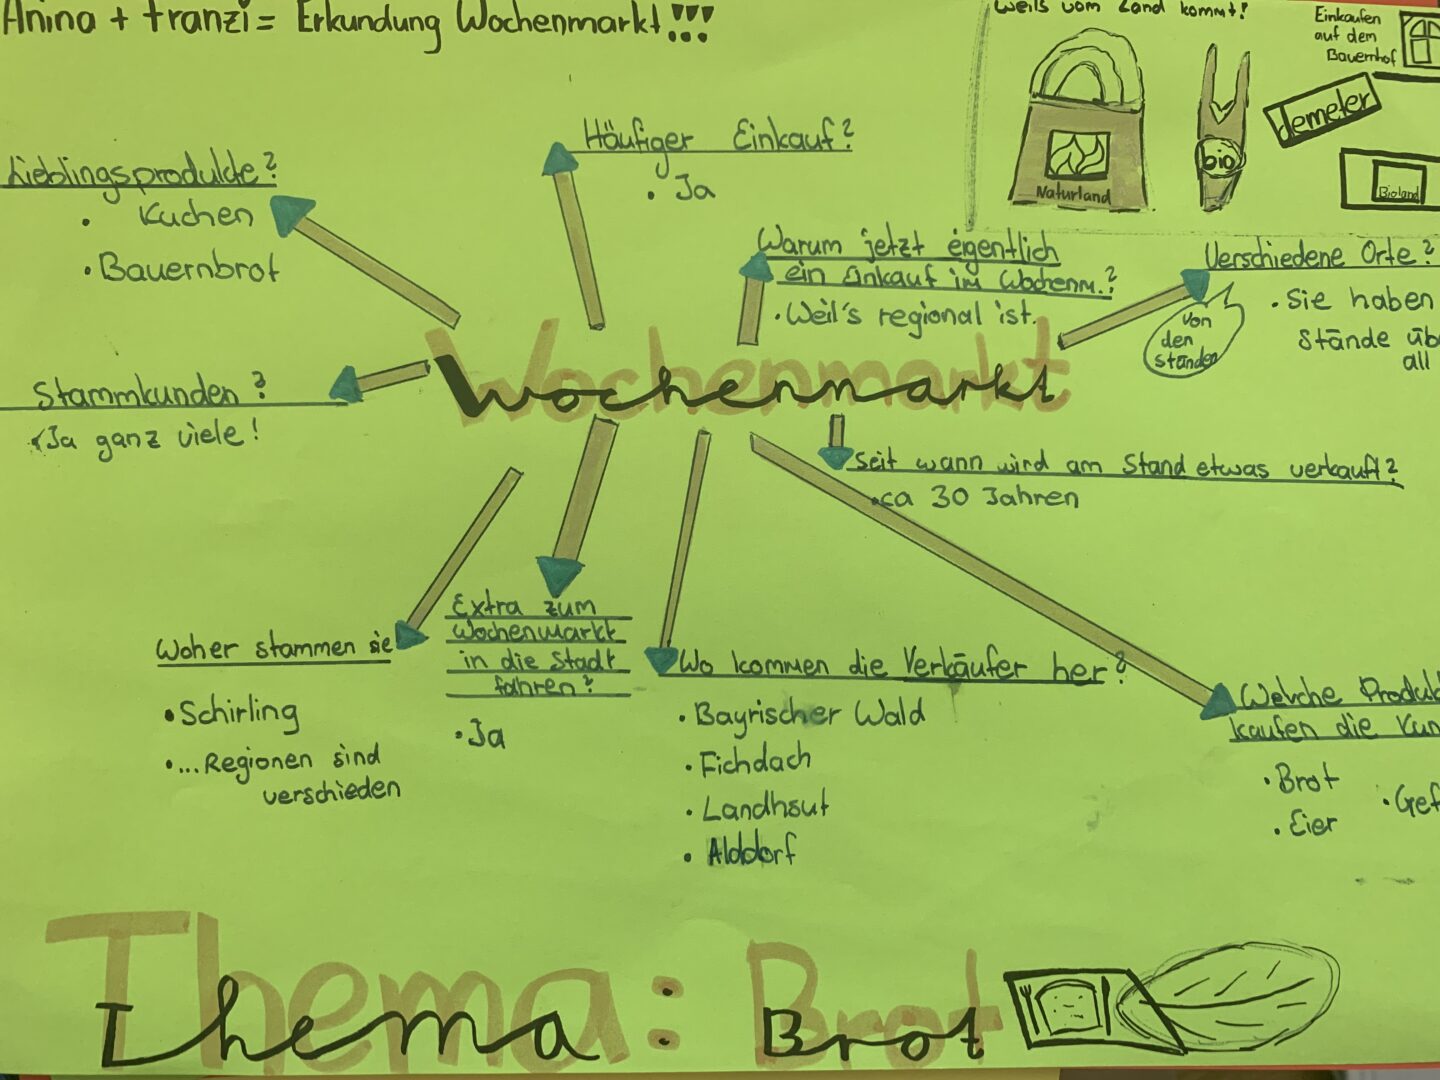 Anina + Franzi = Erkundung Wochenmarkt!!!
Weils vom Land kommt!
Einkaufen
auf dem
Bauernhof
demeter
bio
Naturland
Bioland
Lieblingsprodukte?
• Kuchen
• Bauernbrot
Häufiger Einkauf?
• Ja
Warum jetzt eigentlich
ein Einkauf im Wochenm.?
• Weil's regional ist.
Verschiedene Orte?
• Sie haben
Stände üb
all
von
den
ständen
Stammkunden?
• Ja ganz viele!
Wochenmarkt
Seit wann wird am Stand etwas verkauft?
• ca 30 Jahren
Woher stammen sie
• Schirling
• ... Regionen sind
verschieden
Extra zum
Wochenmarkt
in die Stadt
fahren?
• Ja
Wo kommen die Verkäufer her?
• Bayrischer Wald
• Fichdach
• Landhsut
• Alddorf
Welche Produk
kaufen die Kun
• Brot
• Eier
• Gef
Thema: Brot